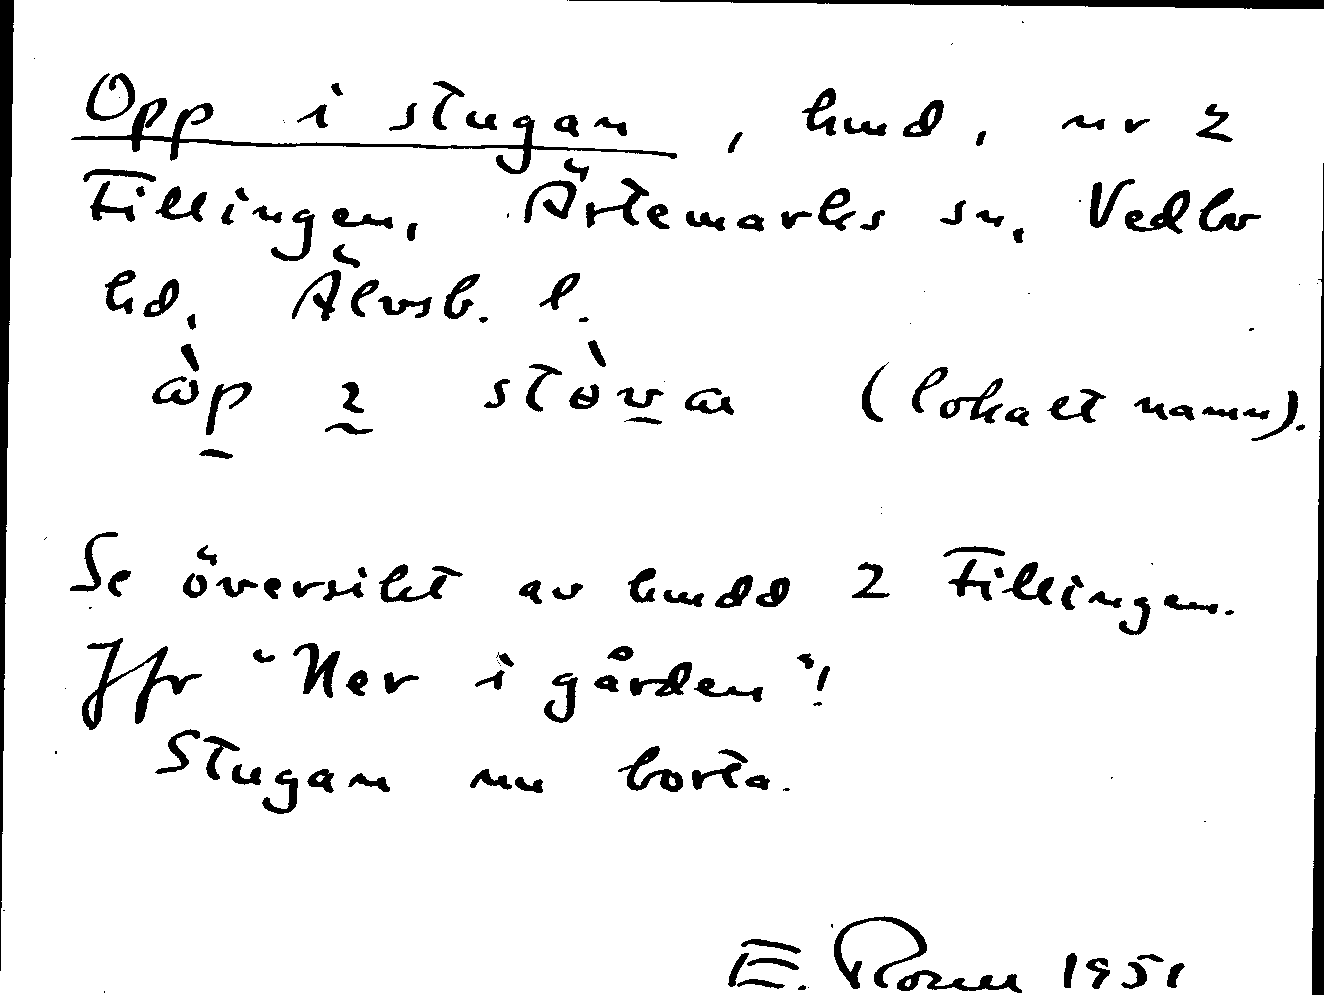 Opp i stugan, hmd, nr 2
Fillingen, Ärtemarks sn, Vedbo
hd, Älvsb. l.
(lokalt namn).
Se översikt av hmdd 2 Fillingen.
Jfr "Ner i gården"!
Stugan nu borta.
E. Rosell 1951